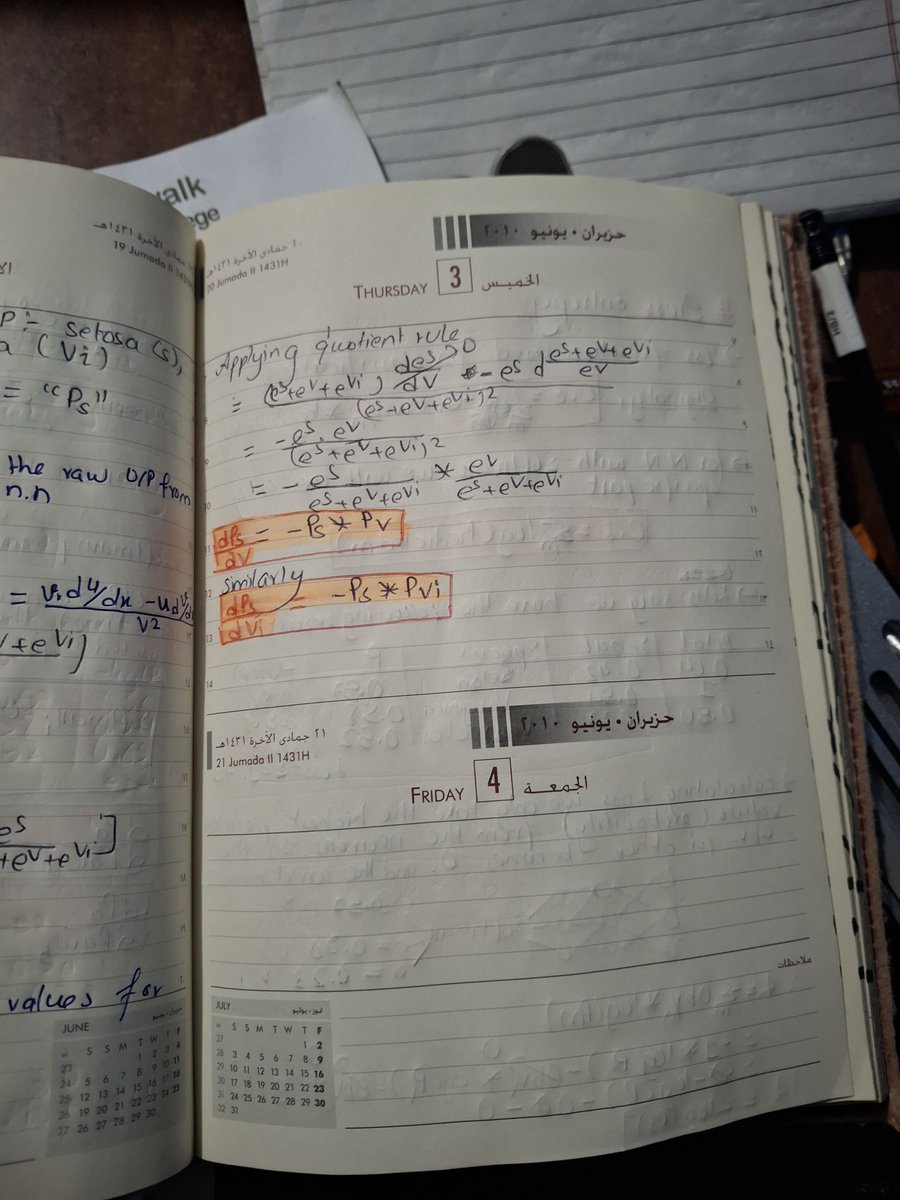 alk
ege
19 Jumada II 1431H
P :- Setosa (s),
a (Vi)
= "Ps"
the raw O/P from
n.n
= v.du/dx - u dv/d
v²
v+eVi)
eS
+eV+eVi ]
values for
JUNE
W S S M T W T F
23 1 2 3 4
24 5 6 7 8 9 10 11
25 12 13 14 15 16 17 18
26 19 20 21 22 23 24 25
27 26 27 28 29 30
حزيران • يونيو ٢٠١٠
٢٠ جمادى الآخرة ١٤٣١هـ
20 Jumada II 1431H
THURSDAY 3 الخميس
Applying quotient rule
= (eS+eV+eVi) deS/dV - eS d eS+eV+eVi/eV
(eS+eV+eVi)2
= -eS. eV
(eS+eV+eVi)2
= - eS/eS+eV+eVi * eV/eS+eV+eVi
dPs/dV = -Ps * PV
Similarly
dPs/dVi = -Ps * PVi
حزيران • يونيو ٢٠١٠
٢١ جمادى الآخرة ١٤٣١هـ
21 Jumada II 1431H
FRIDAY 4 الجمعة
ملاحظات
JULY تموز • يوليو
W S S M T W T F
27 1 2
28 3 4 5 6 7 8 9
29 10 11 12 13 14 15 16
30 17 18 19 20 21 22 23
31 24 25 26 27 28 29 30
32 31